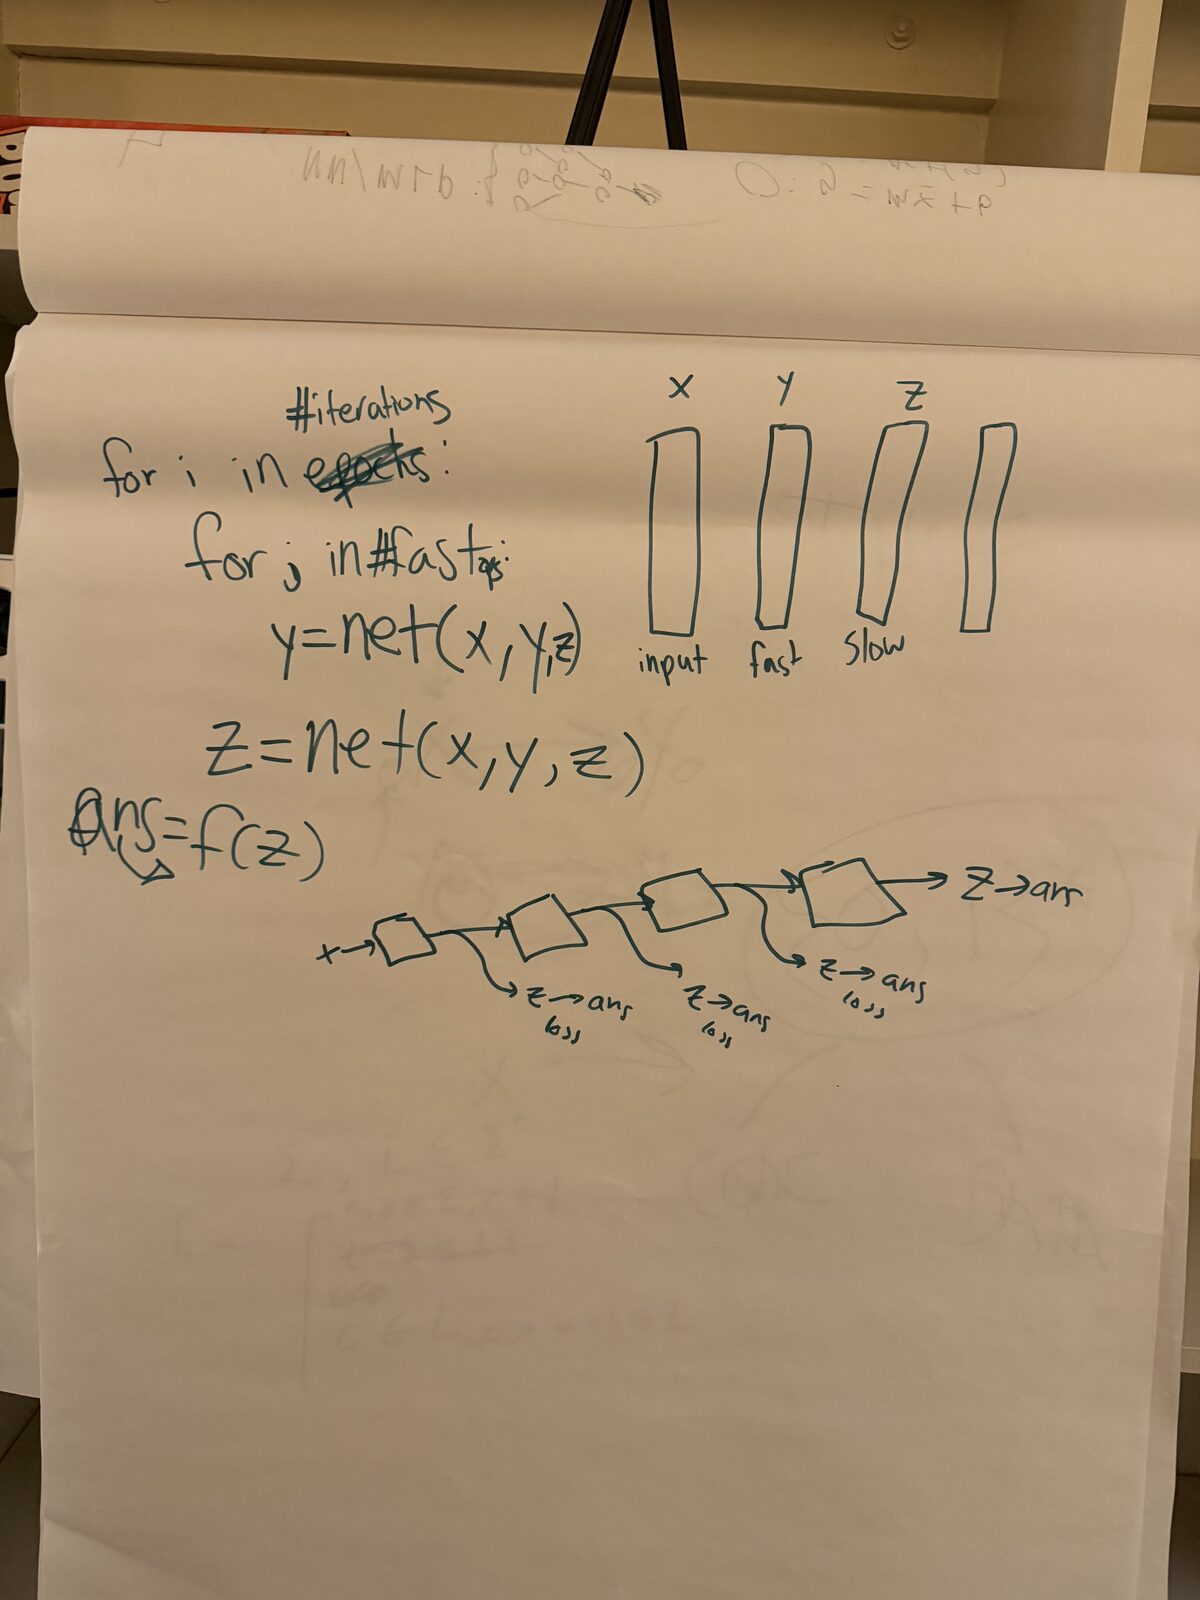 #iterations
for i in epochs:
for j in #fast ops:
y=net(x,y,z)
z=net(x,y,z)
ans=f(z)
X Y Z
input fast slow
x→ → z→ans
z→ans
loss
z→ans
loss
z→ans
loss